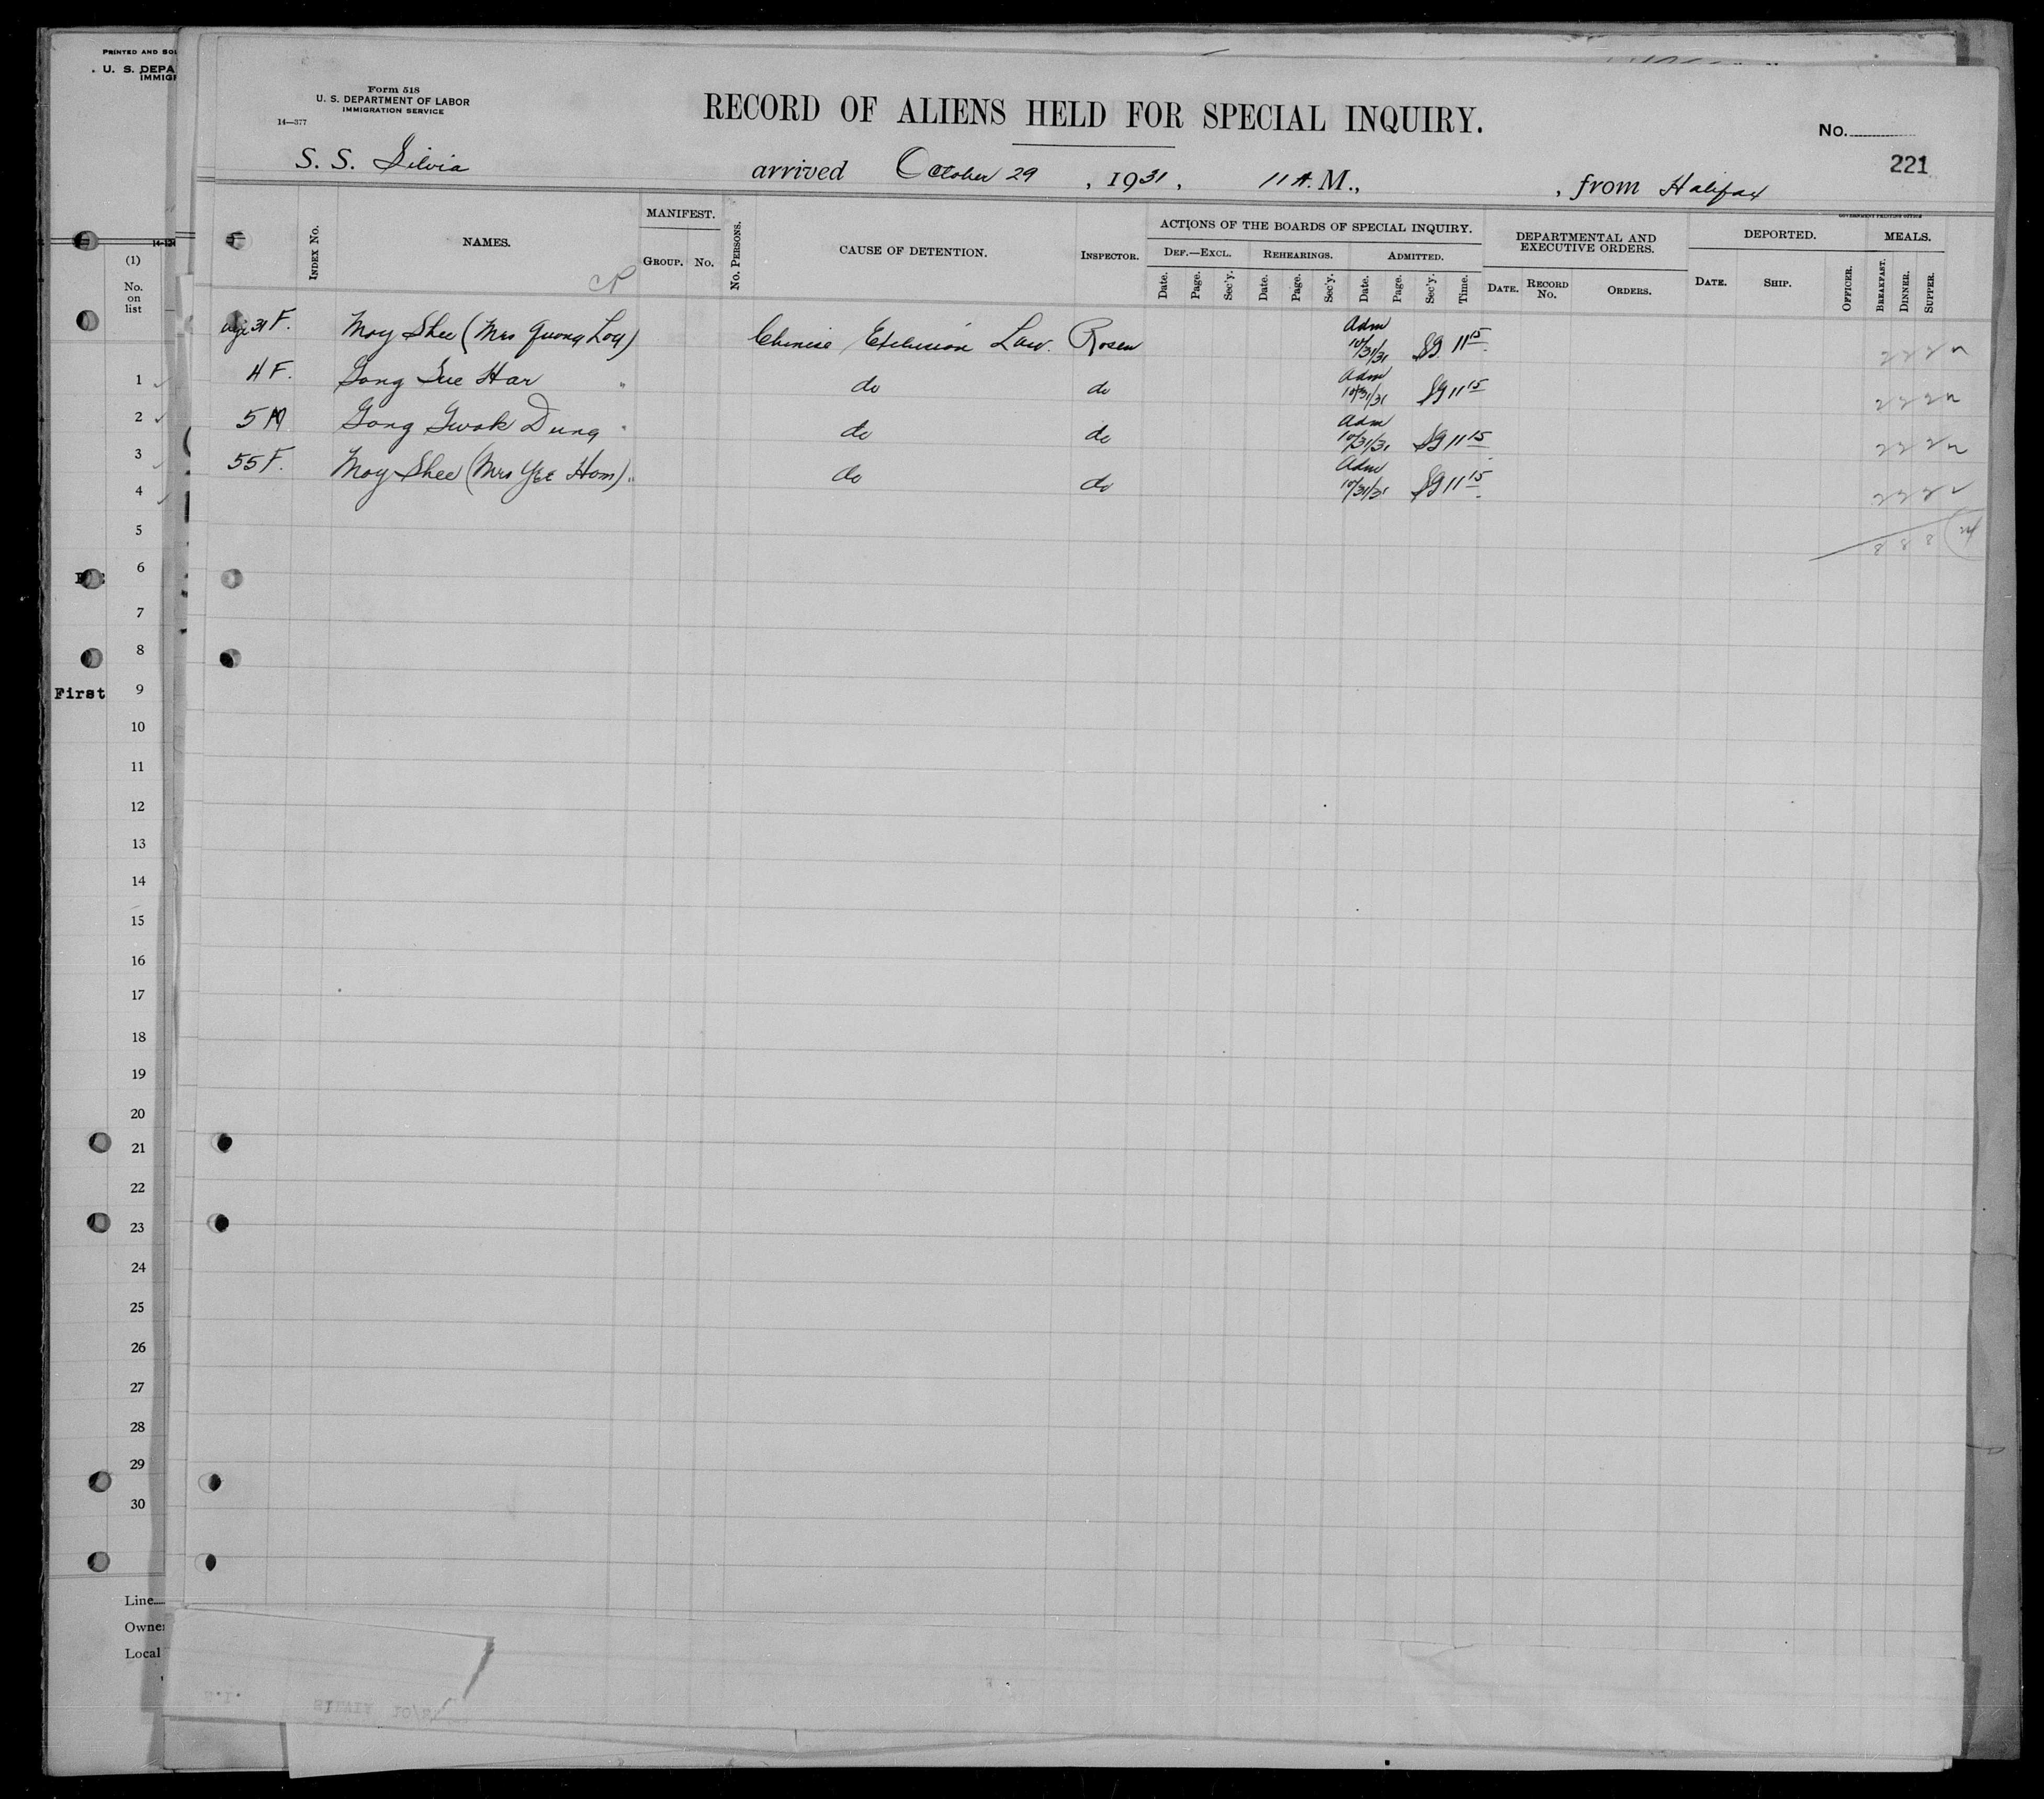 PRINTED AND SOL
U. S. DEPA
IMMIGR
(1)
No.
on
list
Form 518
U. S. DEPARTMENT OF LABOR
IMMIGRATION SERVICE
14—377
RECORD OF ALIENS HELD FOR SPECIAL INQUIRY.
No.
221
S. S. Silvia arrived October 29, 1931, 11 A.M., , from Halifax
GOVERNMENT PRINTING OFFICE
INDEX NO. NAMES. MANIFEST. GROUP. NO. NO. PERSONS. CAUSE OF DETENTION. INSPECTOR. ACTIONS OF THE BOARDS OF SPECIAL INQUIRY. DEPARTMENTAL AND EXECUTIVE ORDERS. DEPORTED. MEALS.
DEF.—EXCL. REHEARINGS. ADMITTED.
Date. Page. Sec'y. Date. Page. Sec'y. Date. Page. Sec'y. Time. DATE. RECORD No. ORDERS. DATE. SHIP. OFFICER. BREAKFAST. DINNER. SUPPER.
age 31 F. Moy Shee (Mrs Quong Loy) Chinese Exclusion Law. Rosen Adm 10/31/31 SG 11 15 2 2 2
4 F. Gong Sue Har " do do Adm 10/31/31 SG 11 15 2 2 2
5 M Gong Gwok Dung " do do Adm 10/31/31 SG 11 15 2 2 2
55 F. Moy Shee (Mrs Yee Hom) " do do Adm 10/31/31 SG 11 15 2 2 2
8 8 8 24
1
2
3
4
5
6
7
8
First 9
10
11
12
13
14
15
16
17
18
19
20
21
22
23
24
25
26
27
28
29
30
Line
Owner
Local